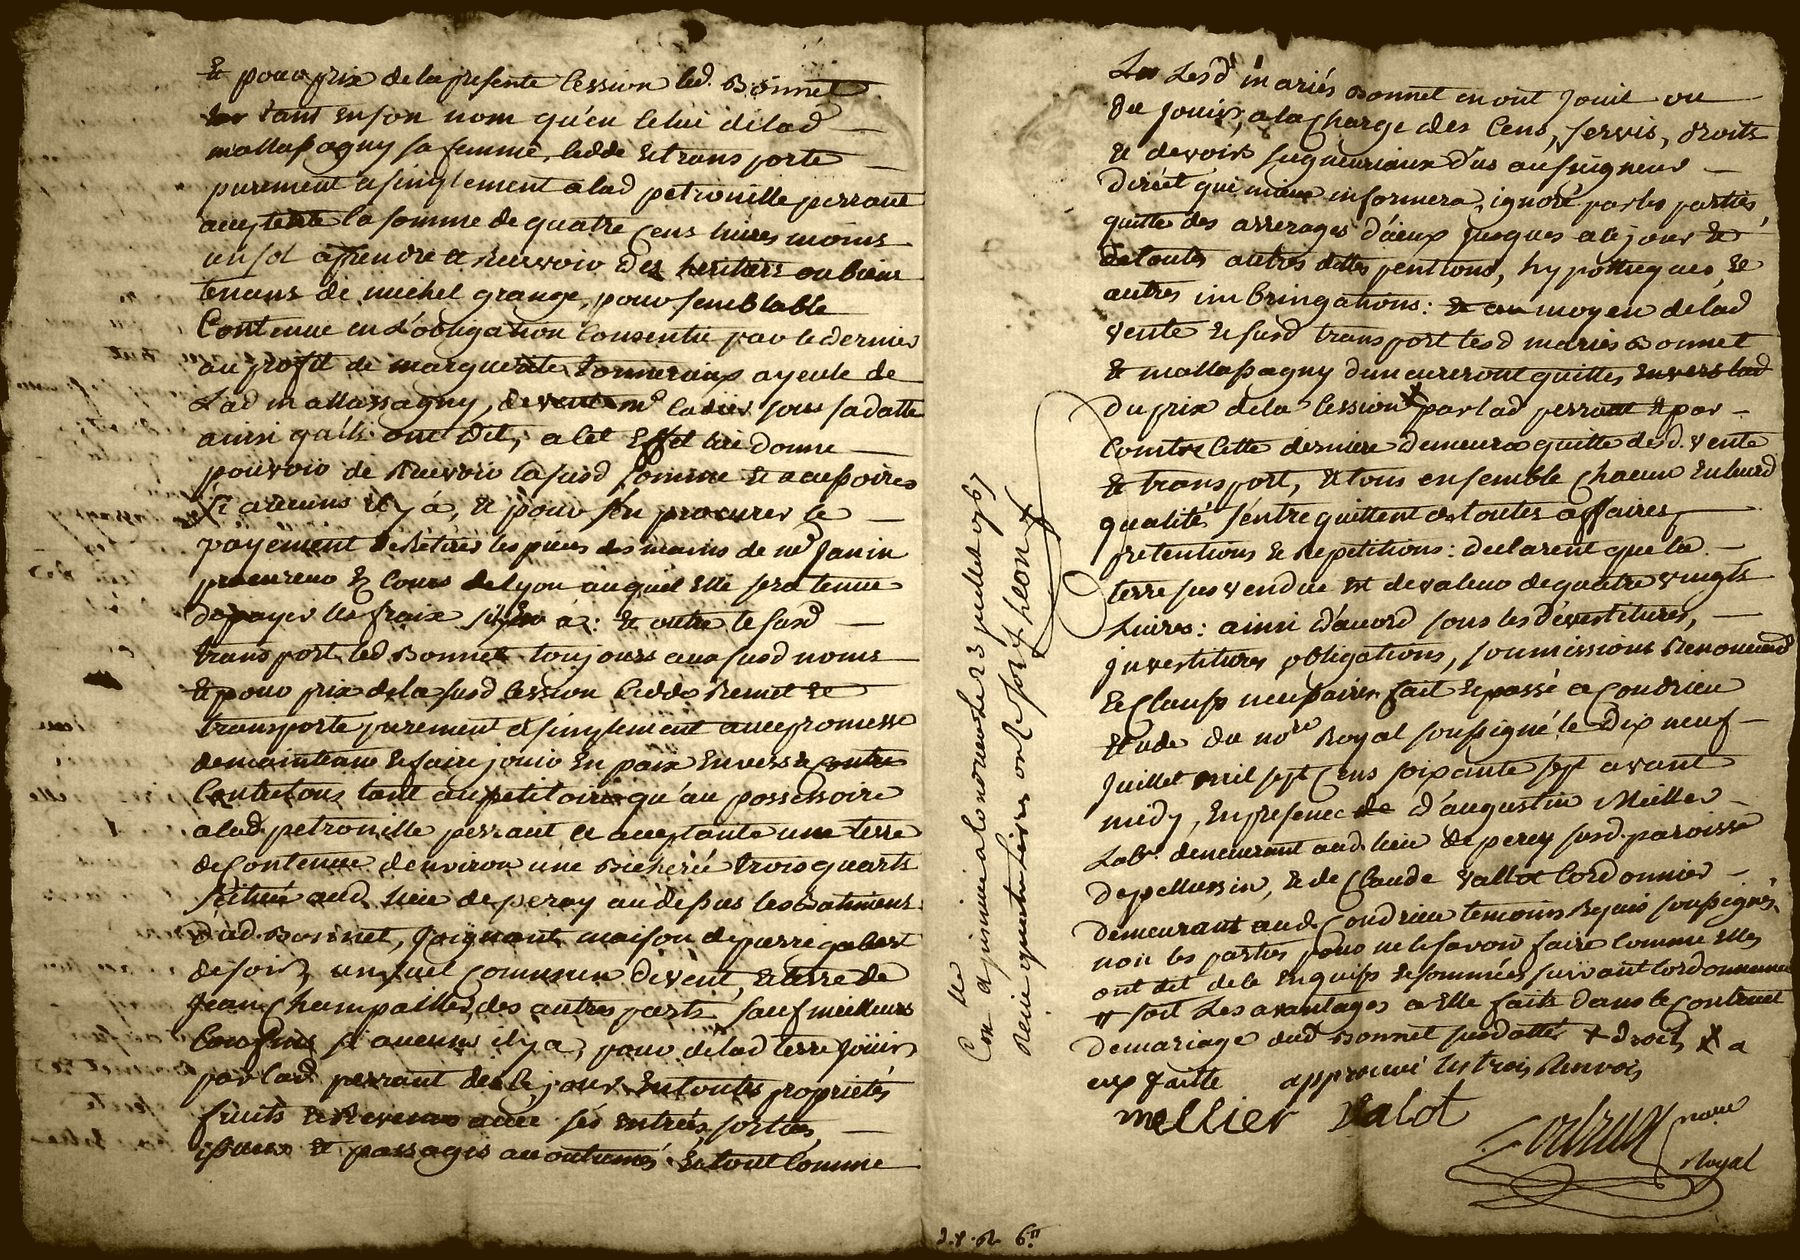 & pour prix de la presente Cession led. Bonnet
tant en son nom qu'en celui de lad
mallassagny sa femme, cedde & transporte
purement & singlement a lad petronille perrant
acceptente la somme de quatre cens livres moins
un sol a prendre & recevoir des heritiers ou bien
tenans de michel grange, pour semblable
Contenue en l'obligation Consentie par le dernier
au profit de marguerite ayeule de
Lad mallassagny, sous sa datte
ainsi qu'ils ont dit, a cet Effet lui donne
pouvoir de Recevoir la susd somme & accessoires
si aucuns il y á, & pour s'en procurer le
payement Retirer les pieces des mains de me Janin
procureur Es Cours de Lyon auquel Elle sera tenue
de payer les fraix s'il y en a: & outre le susd
transport led Bonnet toujours aux susd noms
& pour prix de la susd Cession cedde Remet &
transporte purement & singlement avec promesse
de maintenir & faire jouir En paix Envers & Contre
Contre tous tant au petitoire qu'au possessoire
a lad petronille perrant ce acceptante une terre
de Contenue d'environ une Bicherée trois quarts
scituée aud. lieu de peroy au dessus les batiments
dud. Bonnet, Joignant maison de pierre gabert
de soir, un suel commun de vent, & terre de
Jean Champailler des autres parts sauf meilleurs
Confins si aucuns il y a, pour de lad terre Jouir
par lad perrant des ce jour En toutes proprietés
fruits & Revenus avec ses Entrées, sorties,
issues & passages accoutumés & tout Comme
Lesd mariés Bonnet en ont Jouit ou
du Jouir, a la Charge des Cens, servis, droits
& devoirs seigneuriaux dus au seigneur
direct qui mieux informera, ignoré par les parties
quitte des arrerages d'iceux jusques a ce jour &
de toutes autres dettes pentions, hypotheques, &
autres imbringations: & au moyen de lad
vente & susd transport lesd mariés Bonnet
& mallassagny demeureront quittes envers lad
du prix de la Cession par lad perrant & par
Contre Cette derniere demeurera quitte desd. vente
& transport, & tous ensemble Chacun En leurd
qualité s'entrequittent de toutes affaires,
pretentions & Repetitions: declarent que la
terre sus vendue Est de valeur de quatre vingts
Livres: ainsi d'acord sous les dévestitures,
investitures obligations, soumissions Renonciations
& Clauses necessaires fait & passé a Condrieu
Etude du nore Royal soussigné le Dix neuf
Juillet mil sept Cens soixante sept avant
midy, En presence de d'augustin Meiller
Labr. demeurant aud. lieu de peroy susd. paroisse
de pellussin, & de Claude vallot Cordonnier
demeurant aud. Condrieu temoins Requis soussignés
non les parties pour ne le savoir faire Comme Elles
ont dit de ce Enquises & sommées suivant l'ordonnance
soit Les avantages a Elle faits dans le Contract
de mariage dud Bonnet susdatté + droits + a
eux faitte approuvé les trois Renvois
mellier Valot
nore
Royal
Con lle a
le 23 juillet 1767
6 lt